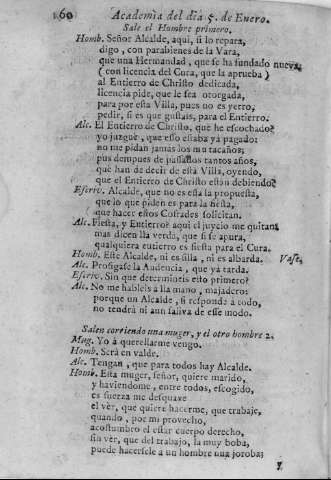 160 Academia del dia 5. de Enero.
Sale el Hombre primero.
Homb. Señor Alcalde, aqui, si lo repara,
digo, con parabienes de la Vara,
que una Hermandad, que se ha fundado nueva,
(con licencia del Cura, que la aprueba)
al Entierro de Christo dedicada,
licencia pide, que le sea otorgada,
para por esta Villa, pues no es yerro,
pedir, si es que gustais, para el Entierro.
Alc. El Entierro de Christo, què he escochado?
yo juzguè, que esso estaba yà pagado:
no me pidan jamàs los mutacaños;
pus derupues de passados tantos años,
què han de decir de esta Villa, oyendo,
que el Entierro de Christo estàn debiendo?
Escriv. Alcalde, que no es essa la propuesta,
que lo que piden es para la fiesta,
que hacer estos Cofrades solicitan.
Alc. Fiesta, y Entierro? aqui el juycio me quitan;
mas dicen lla verda, que si se apura,
qualquiera entierro es fiesta para el Cura.
Homb. Este Alcalde, ni es silla, ni es albarda. Vase.
Alc. Prosigase la Audencia, que yà tarda.
Escriv. Sin que determineis esto primero?
Alc. No me hableis à lla mano, majadero;
porque un Alcalde, si responde à todo,
no tendrà ni aun saliva de esse modo.
Salen corriendo una muger, y el otro hombre 2.
Mug. Yo à querellarme vengo.
Homb. Serà en valde.
Alc. Tengan, que para todos hay Alcalde.
Homb. Esta muger, señor, quiere marido,
y haviendome, entre todos, escogido,
es fuerza me desquave
el vèr, que quiere hacerme, que trabaje,
quando, por mi provecho,
acostumbro el estar cuerpo derecho,
sin vèr, que del trabajo, la muy boba,
puede hacersele à un hombre una joroba;